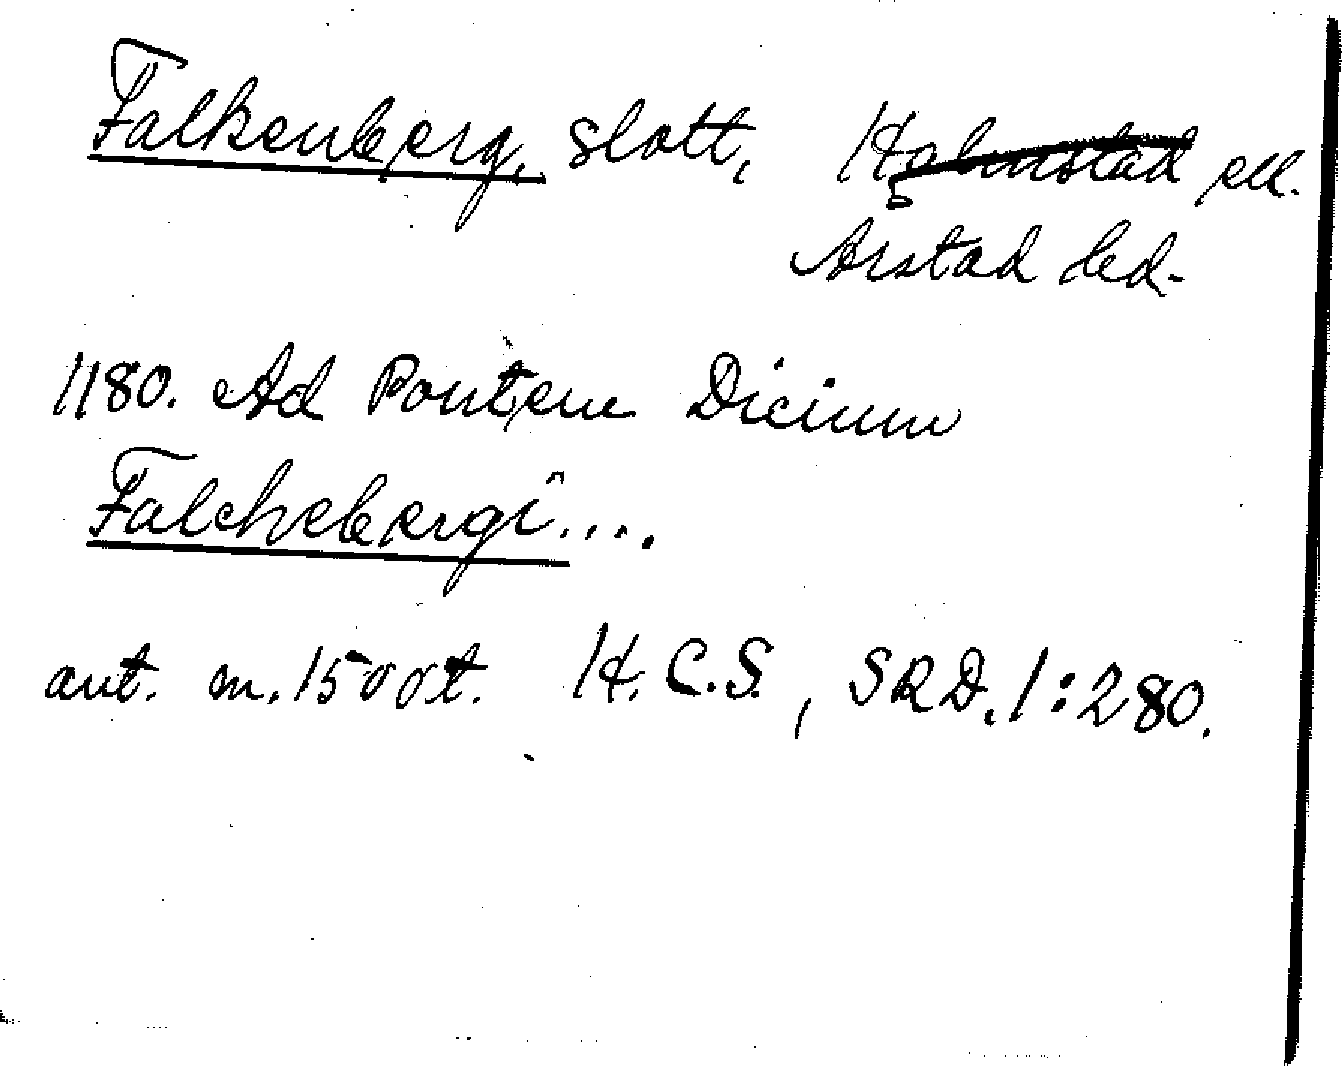 Falkenberg, slott, Halmstad ell.
Årstad hd.
1180. Ad Pontem Dicium
Falchebergi....
ant. m. 1500t. H. C.S., SRD. 1:280.